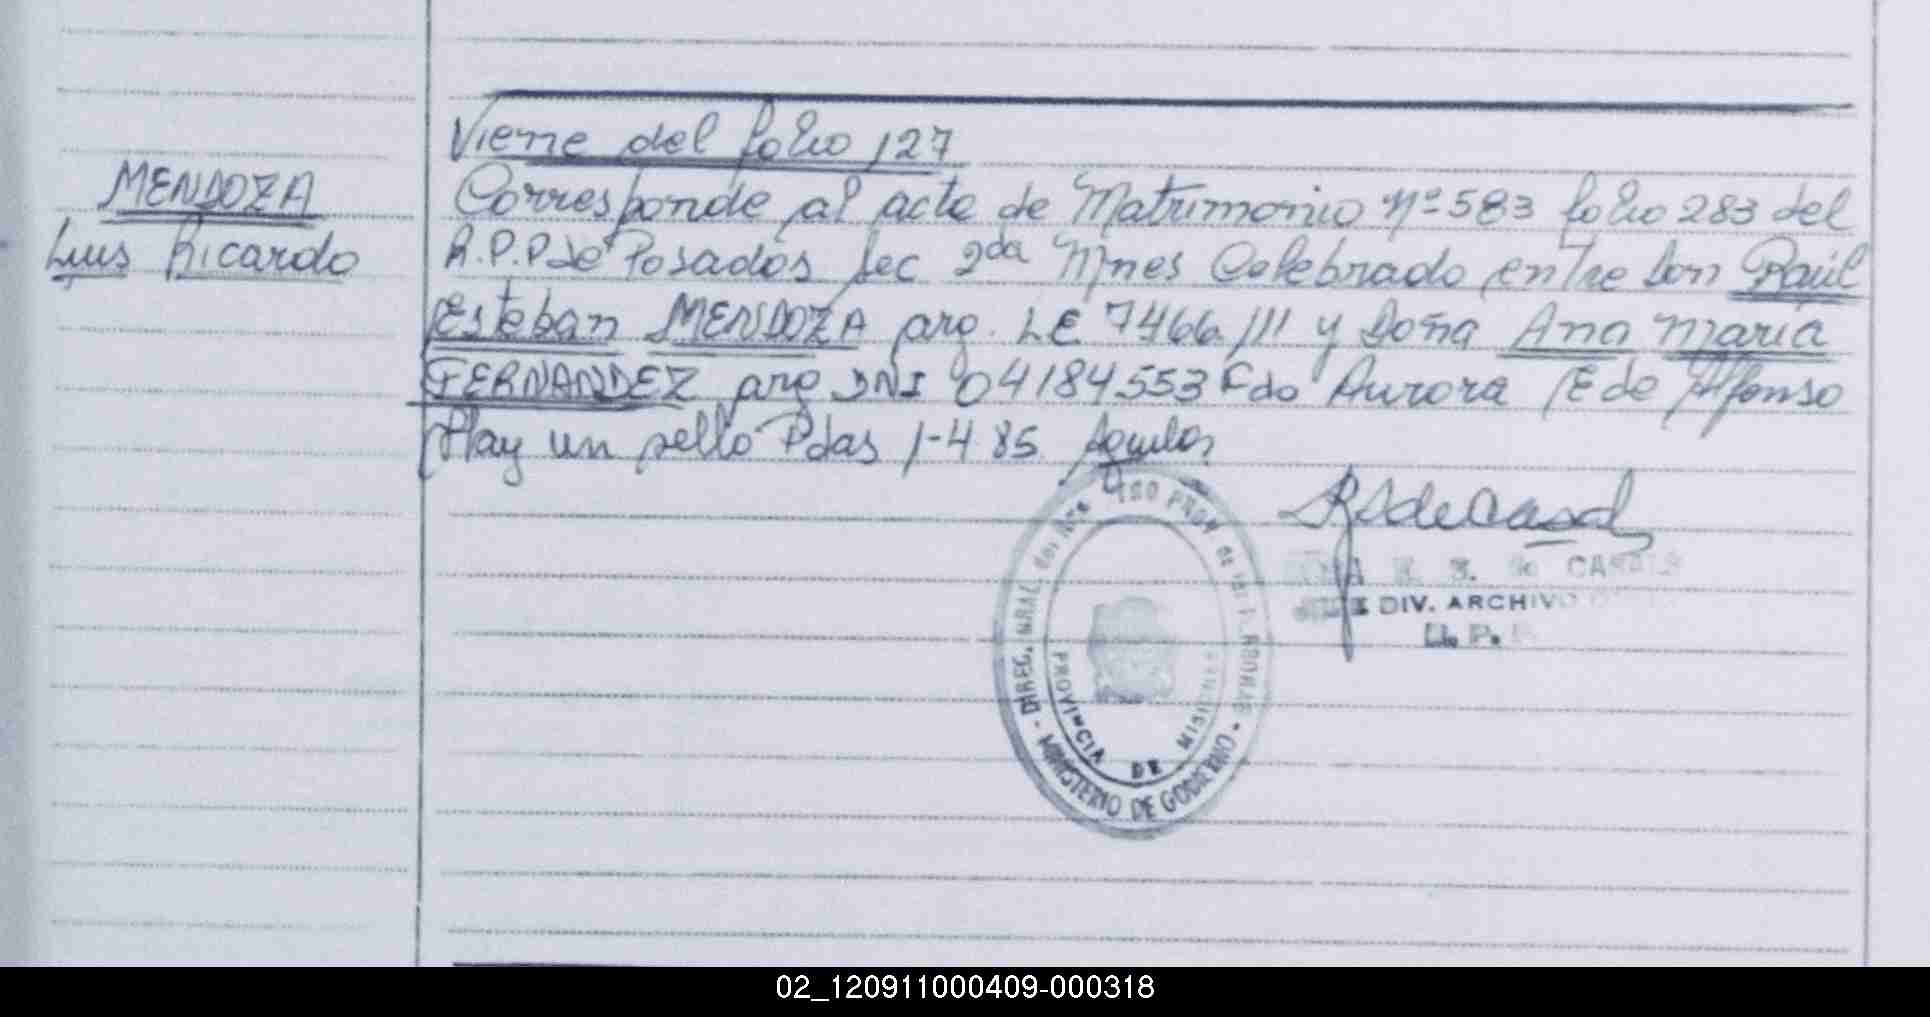 Viene del folio 127
MENDOZA
Luis Ricardo
Corresponde al acta de Matrimonio Nº 583 folio 283 del
R.P.P de Posadas Sec 2da Mnes Celebrado entre Don Raúl
Esteban MENDOZA arg. LE 7466111 y Doña Ana Maria
FERNANDEZ arg DNI 04184553 Fdo Aurora E de Alfonso
Hay un sello Pdas 1-4 85
R S de Casals
R. S. de CASALS
JEFE DIV. ARCHIVO
DIREC. GRAL. del Rtro PROV de las
MINISTERIO DE GOBIERNO
PROVINCIA DE MISIONES
02_120911000409-000318